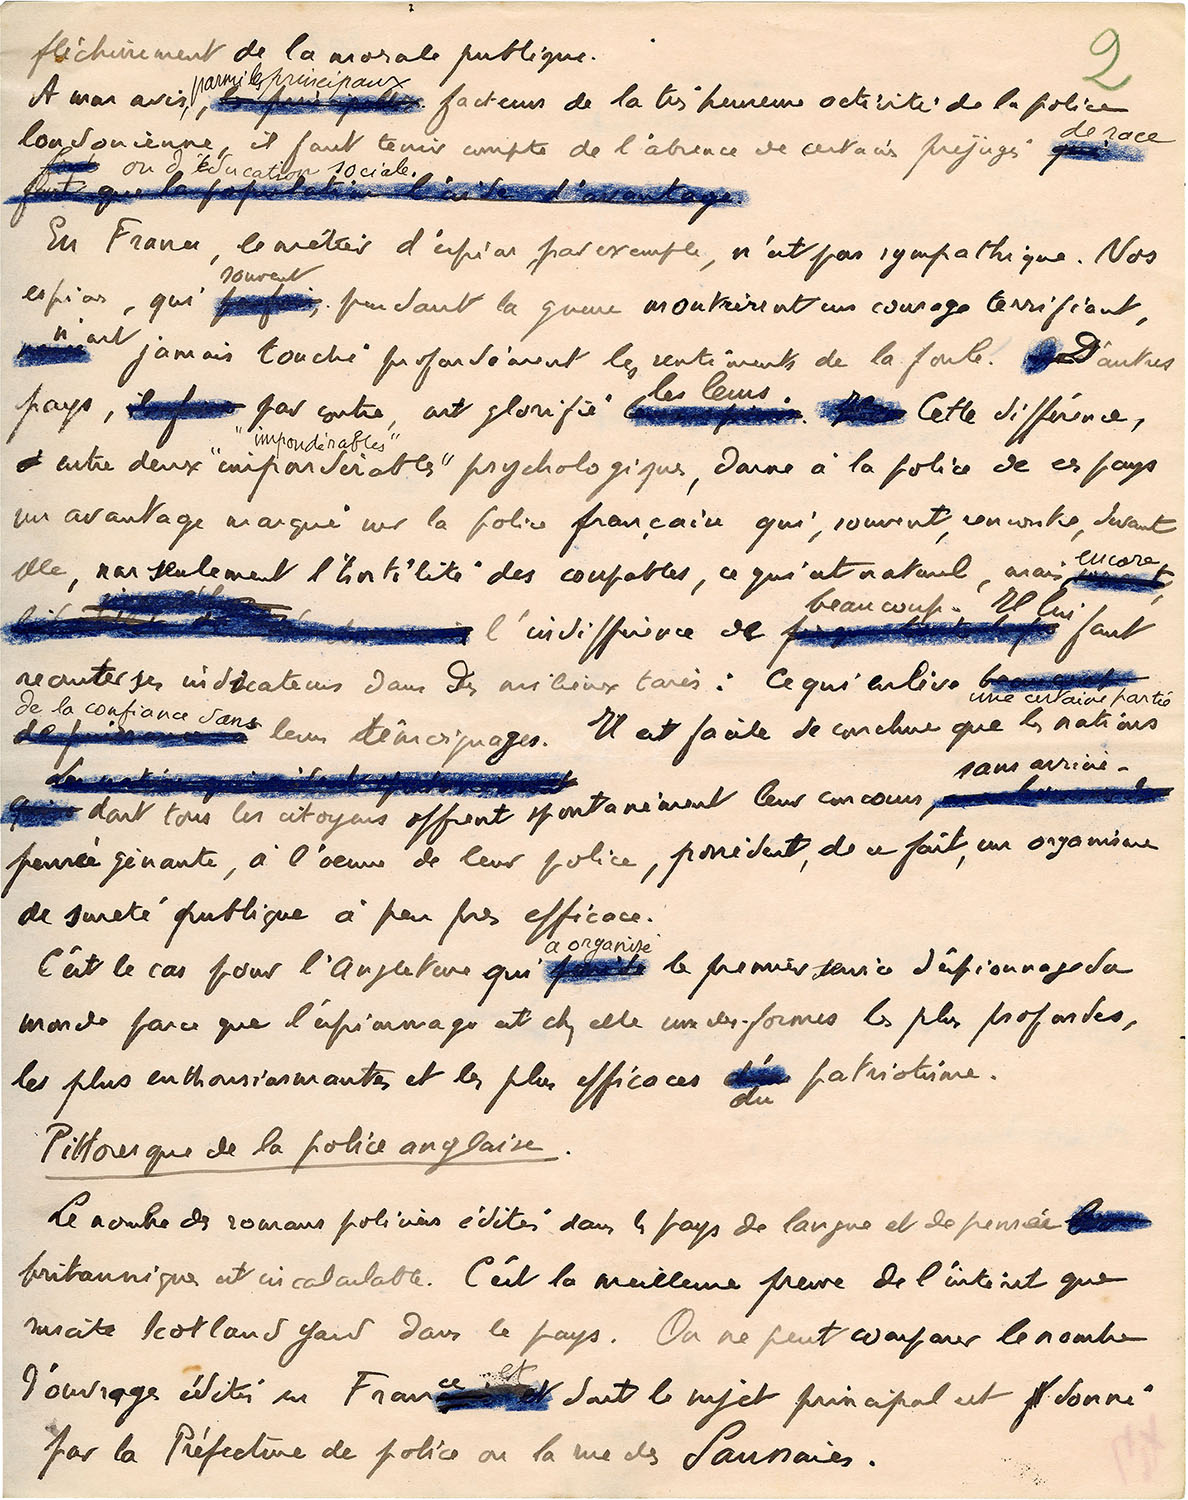 2
fléchissement de la morale publique.
parmi les principaux
A mon avis, facteurs de la très heureuse activité de la police
londonienne, il faut tenir compte de l'absence de certains préjugés de race
ou d'éducation sociale.
fait que la population l'aide d'avantage.
En France, le métier d'espion, par exemple, n'est pas sympathique. Nos
souvent
espions, qui pendant la guerre montrèrent un courage terrifiant,
n'ont jamais touché profondément les sentiments de la foule. D'autres
pays, par contre, ont glorifié les leurs. Cette différence,
"impondérables"
entre deux "impondérables" psychologiques, donne à la police de ces pays
un avantage marqué sur la police française qui, souvent, rencontre, devant
elle, non seulement l'hostilité des coupables, ce qui est naturel, mais encore,
l'indifférence de beaucoup. Il lui faut
recruter ses indicateurs dans des milieux tarés : ce qui enlève
une certaine partie
de la confiance dans
leurs témoignages. Il est facile de conclure que les nations
sans arrière-
dont tous les citoyens offrent spontanément leur concours,
pensée gênante, à l'oeuvre de leur police, possèdent, de ce fait, un organisme
de sureté publique à peu près efficace.
a organisé
C'est le cas pour l'Angleterre qui le premier service d'espionnage du
monde parce que l'espionnage est chez elle une des formes les plus profondes,
les plus enthousiasmantes et les plus efficaces patriotisme.
du
Pittoresque de la police anglaise.
Le nombre des romans policiers édités dans les pays de langue et de pensée
britannique est incalculable. C'est la meilleure preuve de l'intérêt que
suscite Scotland Yard dans le pays. On ne peut comparer le nombre
d'ouvrages édités en France et dont le sujet principal est donné
par la Préfecture de police ou la rue des Saussaies.